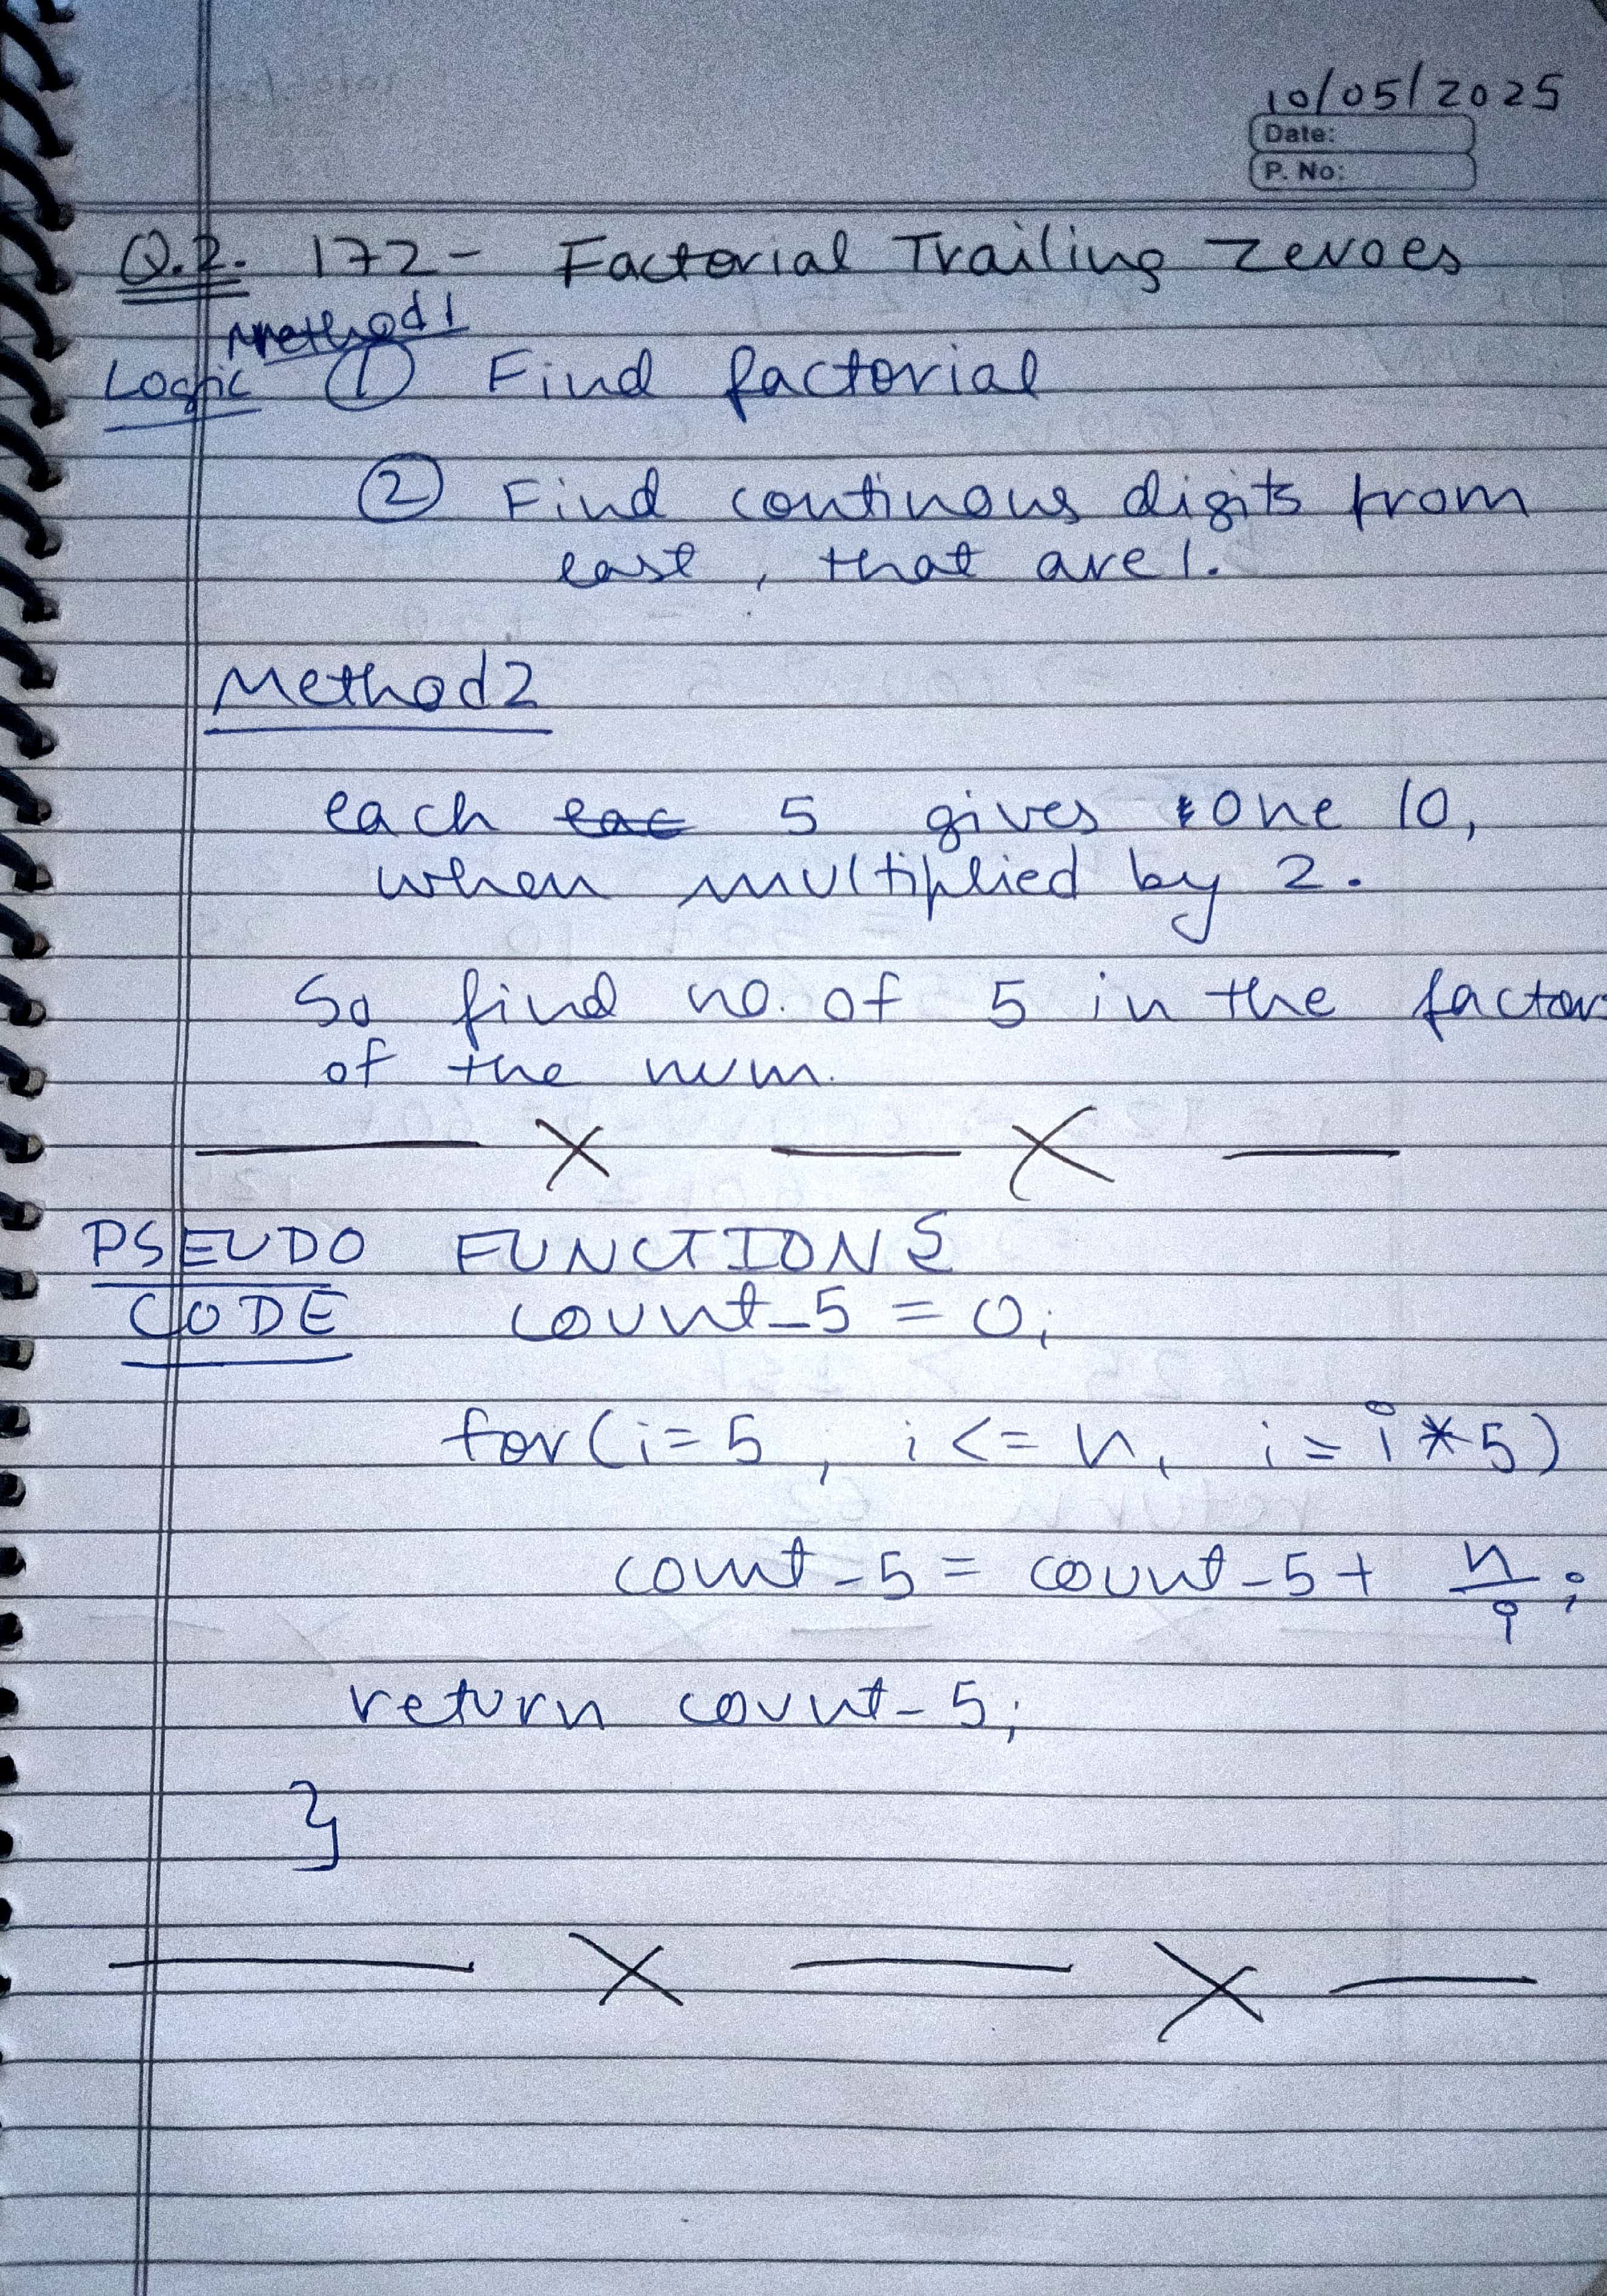 10/05/2025
Date:
P. No:
Q.2. 172 - Factorial Trailing Zeroes
Method 1
Logic ① Find factorial
② Find continous digits from
last, that are 1.
Method 2
each eac 5 gives one 10,
when multiplied by 2.
So find no. of 5 in the factors
of the num.
— X — X —
PSEUDO FUNCTION {
CODE count_5 = 0;
for (i=5, i<=n, i=i*5)
count_5 = count_5 + n/i;
return count_5;
}
— X — X —